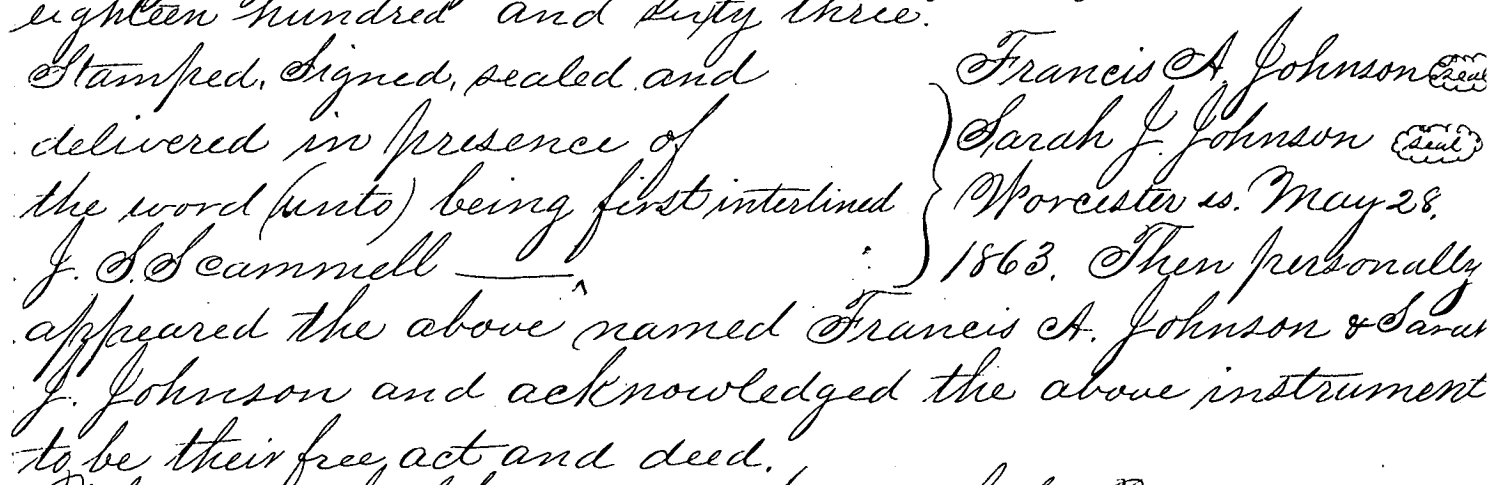 eighteen hundred and sixty three.
Stamped, Signed, sealed and
delivered in presence of
the word (unto) being first interlined
J. S. Scammell
Francis A. Johnson seal
Sarah J. Johnson seal
Worcester ss. May 28,
1863. Then personally
appeared the above named Francis A. Johnson & Sarah
J. Johnson and acknowledged the above instrument
to be their free act and deed.